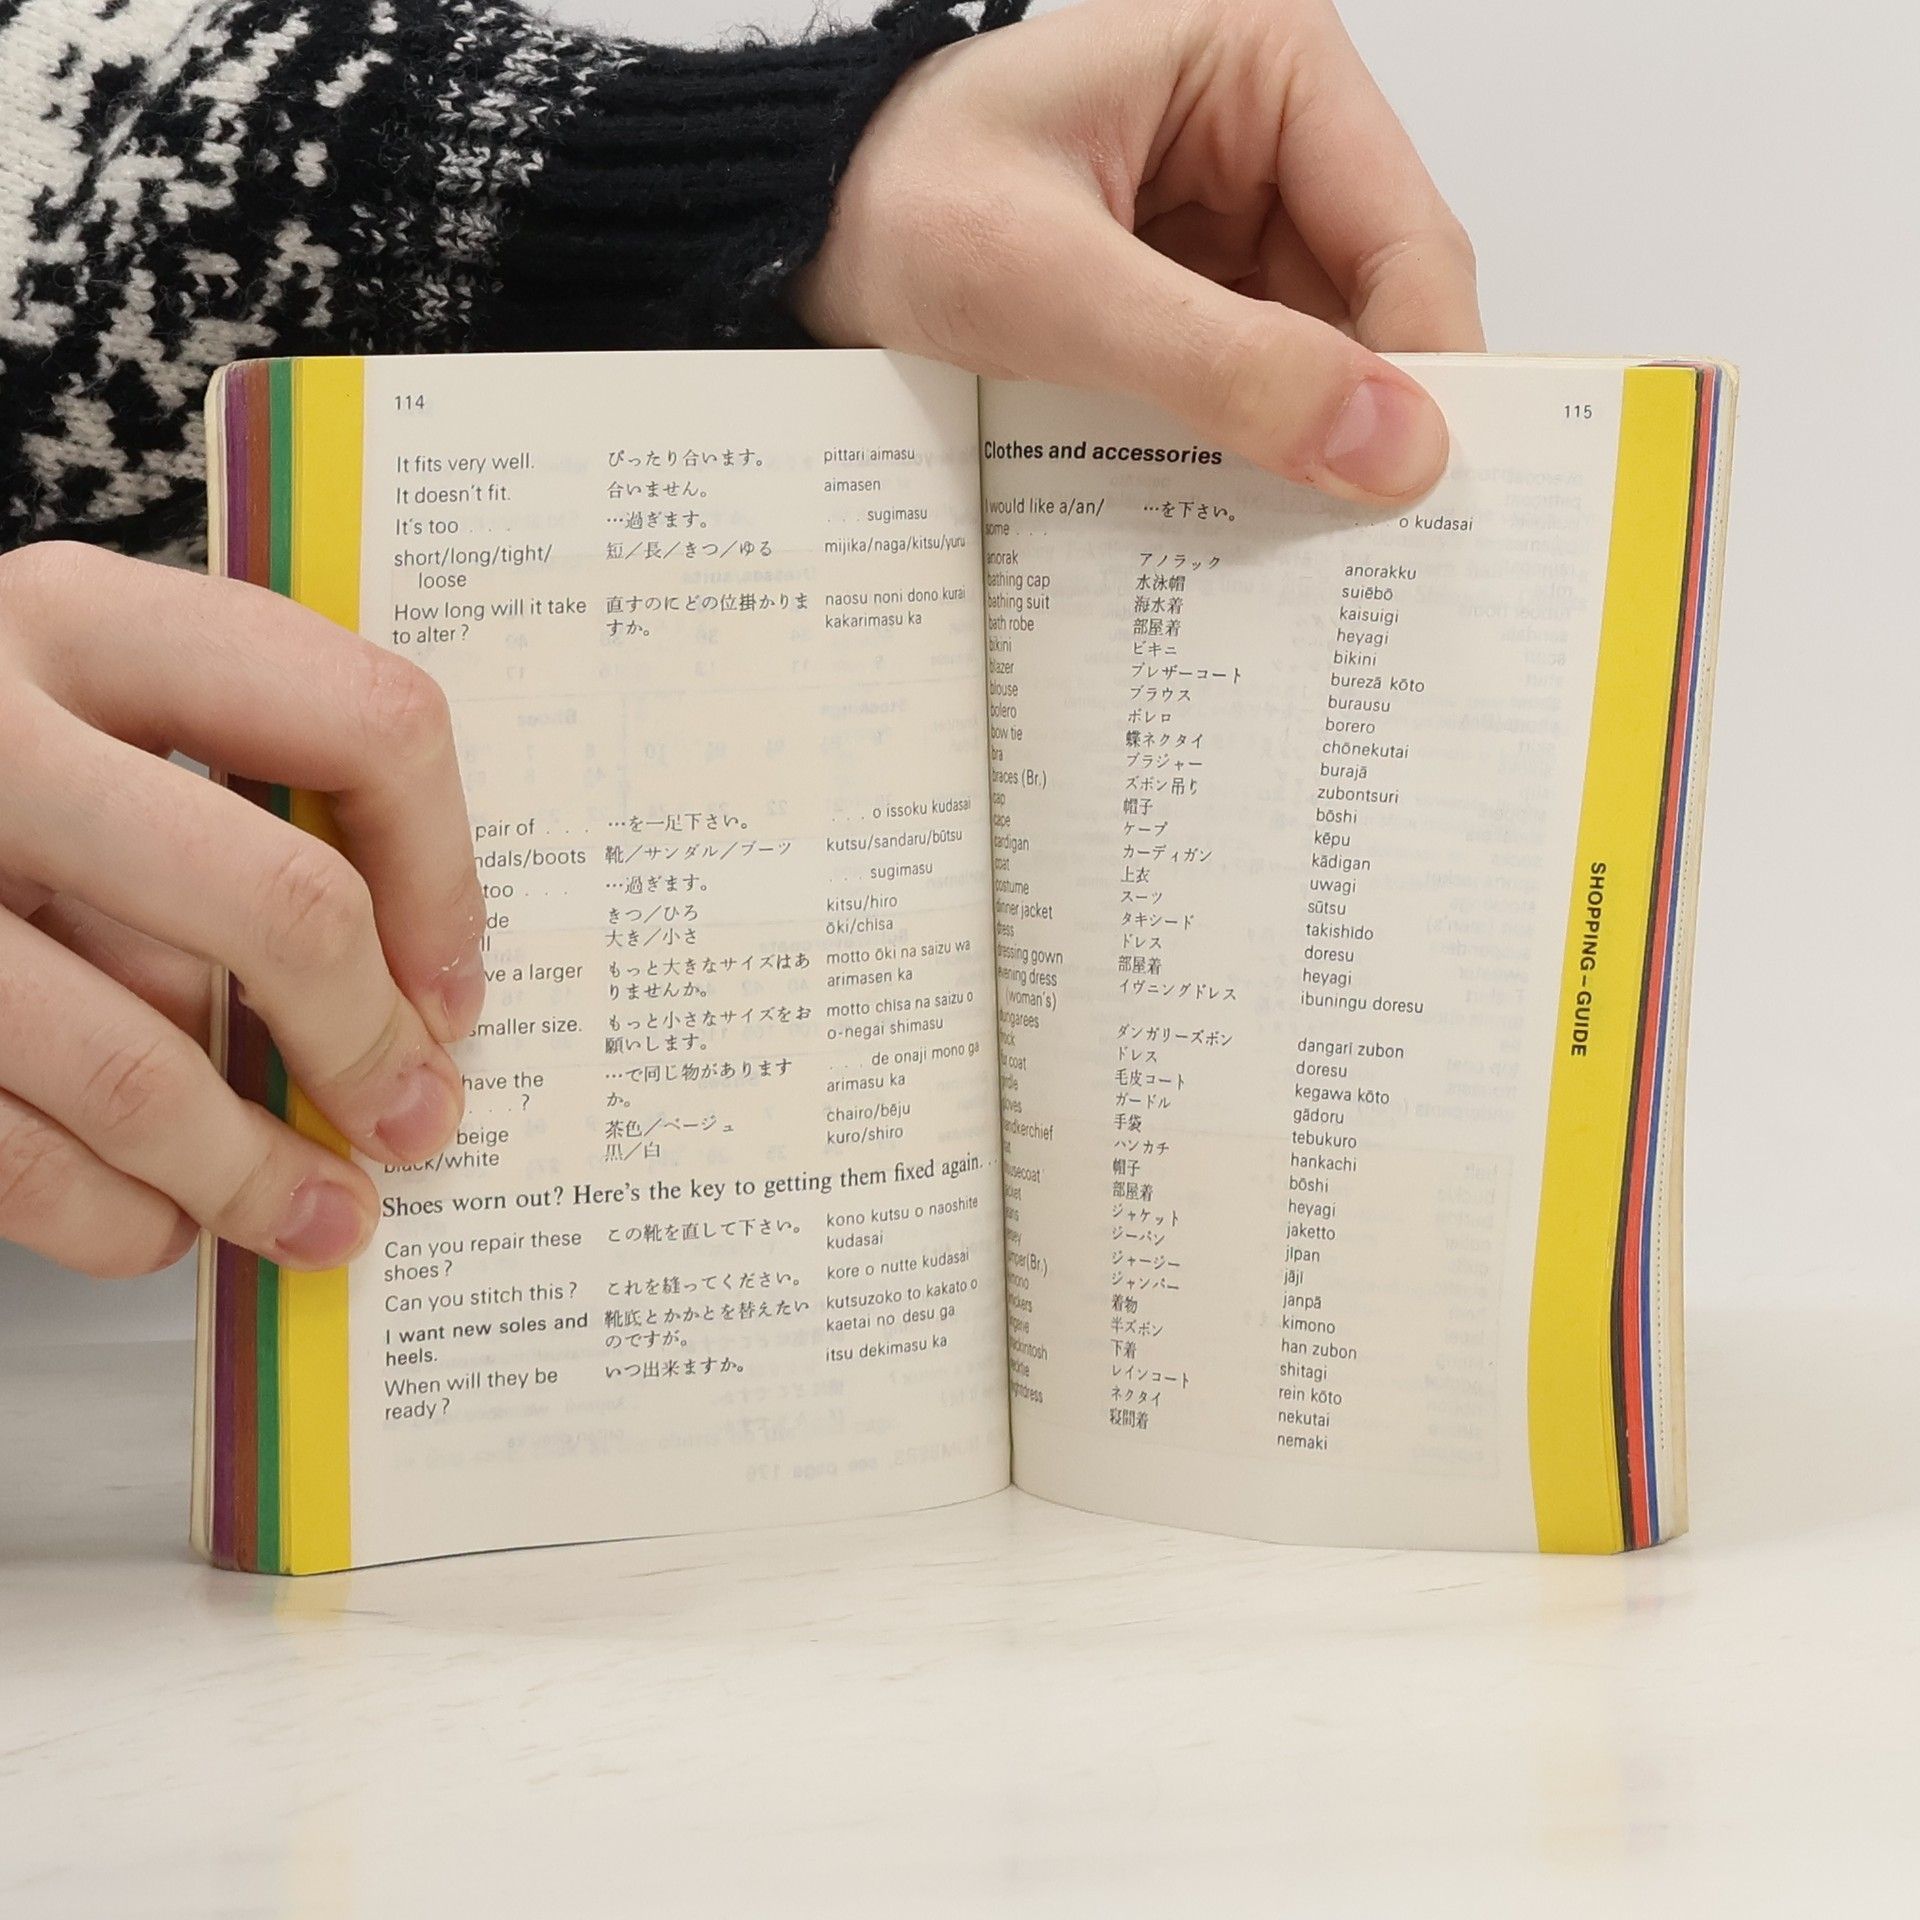 114
It fits very well. ぴったり合います。 pittari aimasu
It doesn't fit. 合いません。 aimasen
It's too . . . …過ぎます。 . . . sugimasu
short/long/tight/ 短／長／きつ／ゆる mijika/naga/kitsu/yuru
loose
How long will it take 直すのにどの位掛かりま naosu noni dono kurai
to alter? すか。 kakarimasu ka
pair of . . . …を一足下さい。 . . . o issoku kudasai
/boots 靴／サンダル／ブーツ kutsu/sandaru/būtsu
too . . . …過ぎます。 . . . sugimasu
きつ／ひろ kitsu/hiro
大き／小さ ōki/chīsa
a larger もっと大きなサイズはあ motto ōki na saizu wa
りませんか。 arimasen ka
smaller size. もっと小さなサイズをお motto chīsa na saizu o
願いします。 o-negai shimasu
have the …で同じ物があります . . . de onaji mono ga
. . . ? か。 arimasu ka
beige 茶色／ベージュ chairo/bēju
black/white 黒／白 kuro/shiro
Shoes worn out? Here's the key to getting them fixed again. . .
Can you repair these この靴を直して下さい。 kono kutsu o naoshite
shoes? kudasai
Can you stitch this? これを縫ってください。 kore o nutte kudasai
I want new soles and 靴底とかかとを替えたい kutsuzoko to kakato o
heels. のですが。 kaetai no desu ga
When will they be いつ出来ますか。 itsu dekimasu ka
ready?
115
Clothes and accessories
I would like a/an/ …を下さい。 . . . o kudasai
some . . .
anorak アノラック anorakku
bathing cap 水泳帽 suiēbō
bathing suit 海水着 kaisuigi
bath robe 部屋着 heyagi
bikini ビキニ bikini
blazer ブレザーコート burezā kōto
blouse ブラウス burausu
bolero ボレロ borero
bow tie 蝶ネクタイ chōnekutai
bra ブラジャー burajā
braces (Br.) ズボン吊り zubontsuri
cap 帽子 bōshi
cape ケープ kēpu
cardigan カーディガン kādigan
coat 上衣 uwagi
costume スーツ sūtsu
dinner jacket タキシード takishīdo
dress ドレス doresu
dressing gown 部屋着 heyagi
evening dress イヴニングドレス ibuningu doresu
(woman's)
dungarees ダンガリーズボン dangarī zubon
frock ドレス doresu
fur coat 毛皮コート kegawa kōto
girdle ガードル gādoru
gloves 手袋 tebukuro
handkerchief ハンカチ hankachi
hat 帽子 bōshi
housecoat 部屋着 heyagi
jacket ジャケット jaketto
jeans ジーパン jīpan
jersey ジャージー jājī
jumper(Br.) ジャンパー janpā
kimono 着物 kimono
knickers 半ズボン han zubon
下着 shitagi
mackintosh レインコート rein kōto
necktie ネクタイ nekutai
nightdress 寝間着 nemaki
SHOPPING–GUIDE